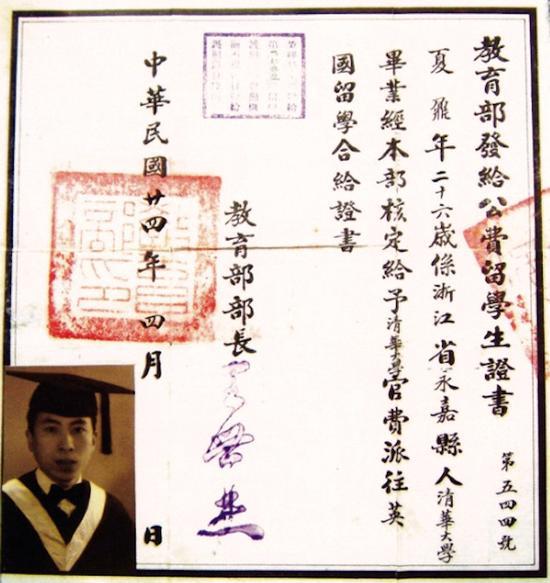 教育部發給公費留學生證書
第五四四號
夏鼐年二十六歲係浙江省永嘉縣人清華大學
畢業經本部核定給予清華大學官費派往英
國留學合給證書
教育部部長
中華民國廿四年四月 日
教育部印